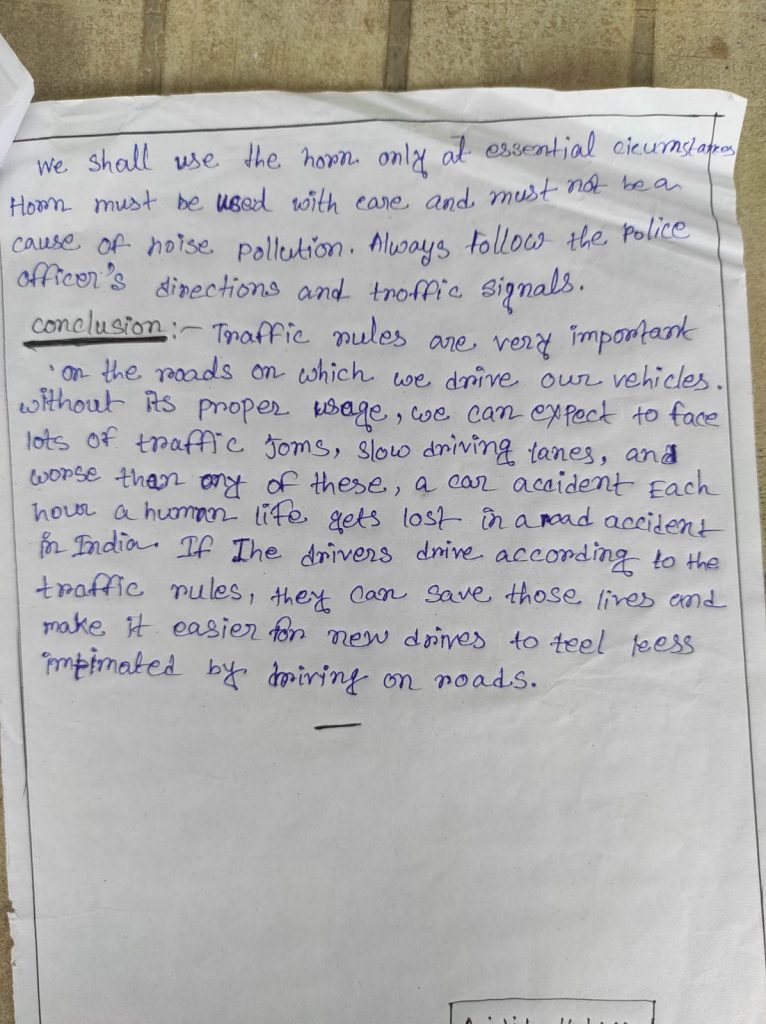 we shall use the horn only at essential cicumstances
Horn must be used with care and must not be a
cause of noise pollution. Always follow the police
officer's directions and troffic signals.
conclusion :- Traffic rules are very important
on the roads on which we drive our vehicles.
without its proper usage, we can expect to face
lots of traffic Joms, slow driving lanes, and
worse than any of these, a car accident Each
hour a human life gets lost in a road accident
in India. If The drivers drive according to the
traffic rules, they can save those lives and
make it easier for new drives to teel leess
by driving on roads.